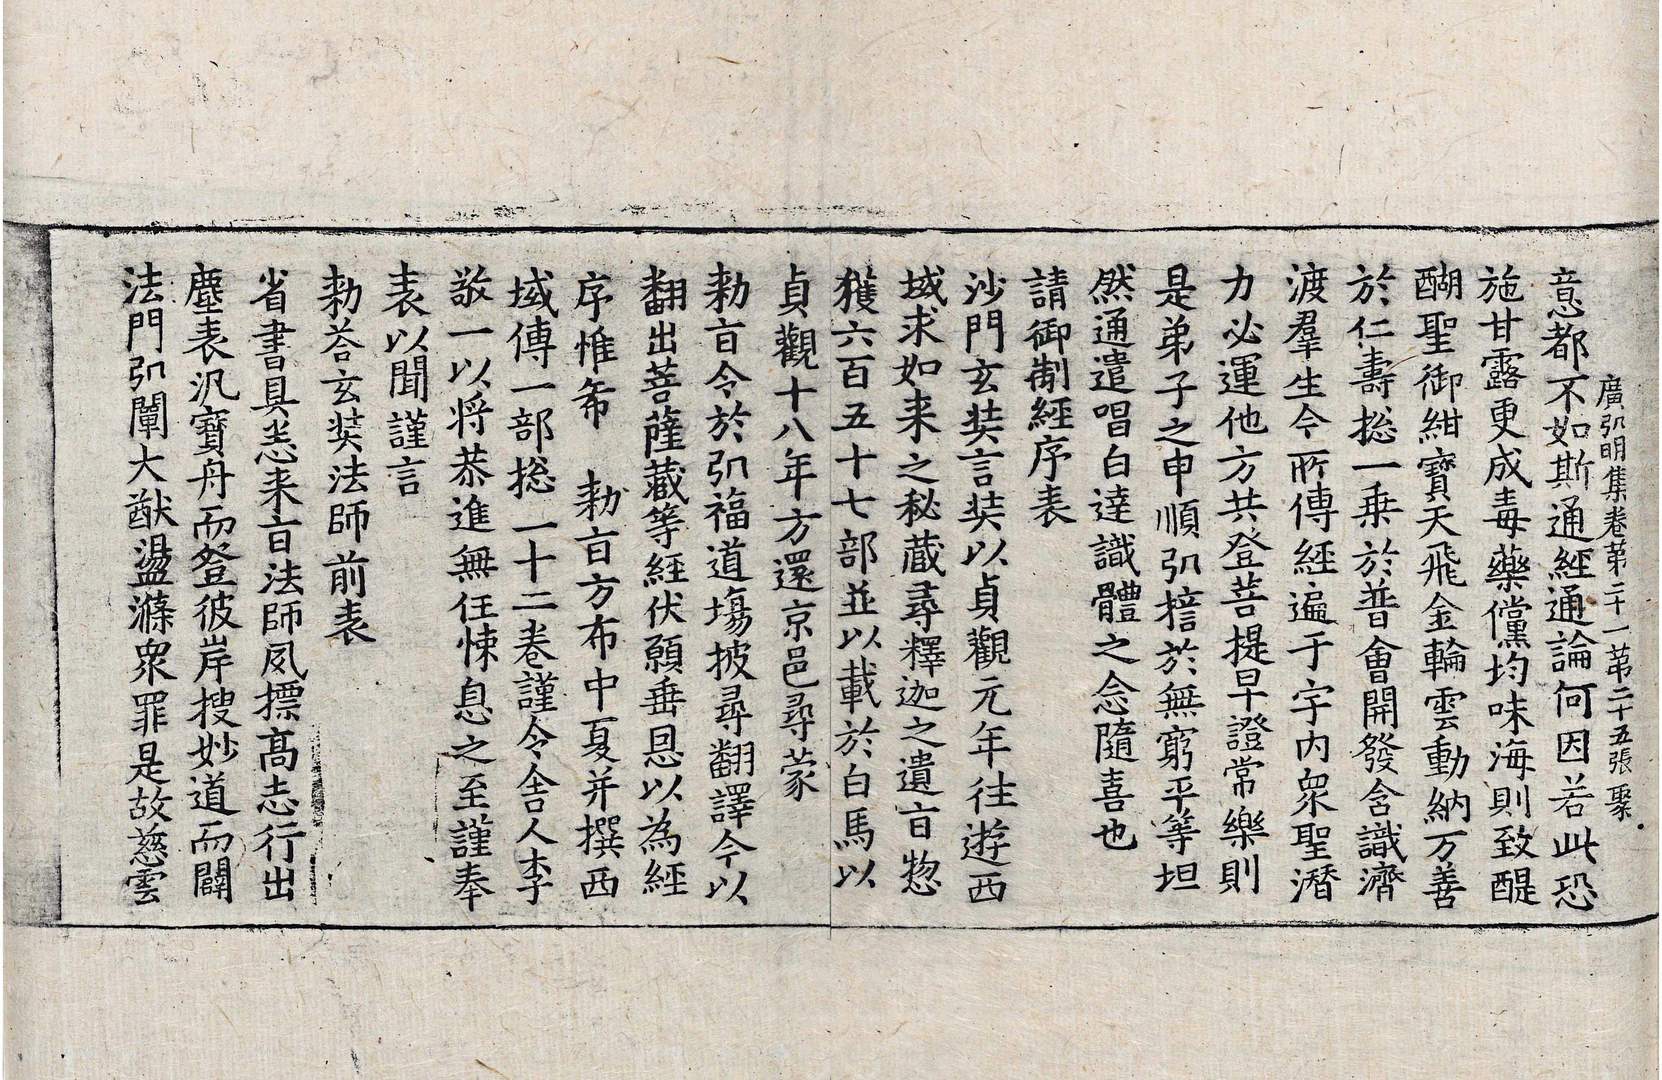 廣弘明集卷第二十一　第二十五張　聚
意都不如斯通經通論何因若此恐
施甘露更成毒藥儻均味海則致醍
醐聖御紺寶天飛金輪雲動納万善
於仁壽揔一乗於普會開發含識濟
渡羣生今所傳經遍于宇内衆聖潛
力必運他方共登菩提早證常樂則
是弟子之申順弘誓於無窮平等坦
然通遣唱白達識體之念隨喜也
請御制經序表
沙門玄奘言奘以貞觀元年往遊西
域求如来之秘藏尋釋迦之遺旨惣
獲六百五十七部並以載於白馬以
貞觀十八年方還京邑尋蒙
勑旨令於弘福道場披尋翻譯今以
翻出菩薩藏等經伏願垂恩以為經
序惟希　勑旨方布中夏并撰西
域傳一部揔一十二卷謹令舍人李
敬一以将恭進無任悚息之至謹奉
表以聞謹言
勑荅玄奘法師前表
省書具悉来旨法師夙摽高志行出
塵表汎寶舟而登彼岸搜妙道而闢
法門弘闡大猷盪滌衆罪是故慈雲